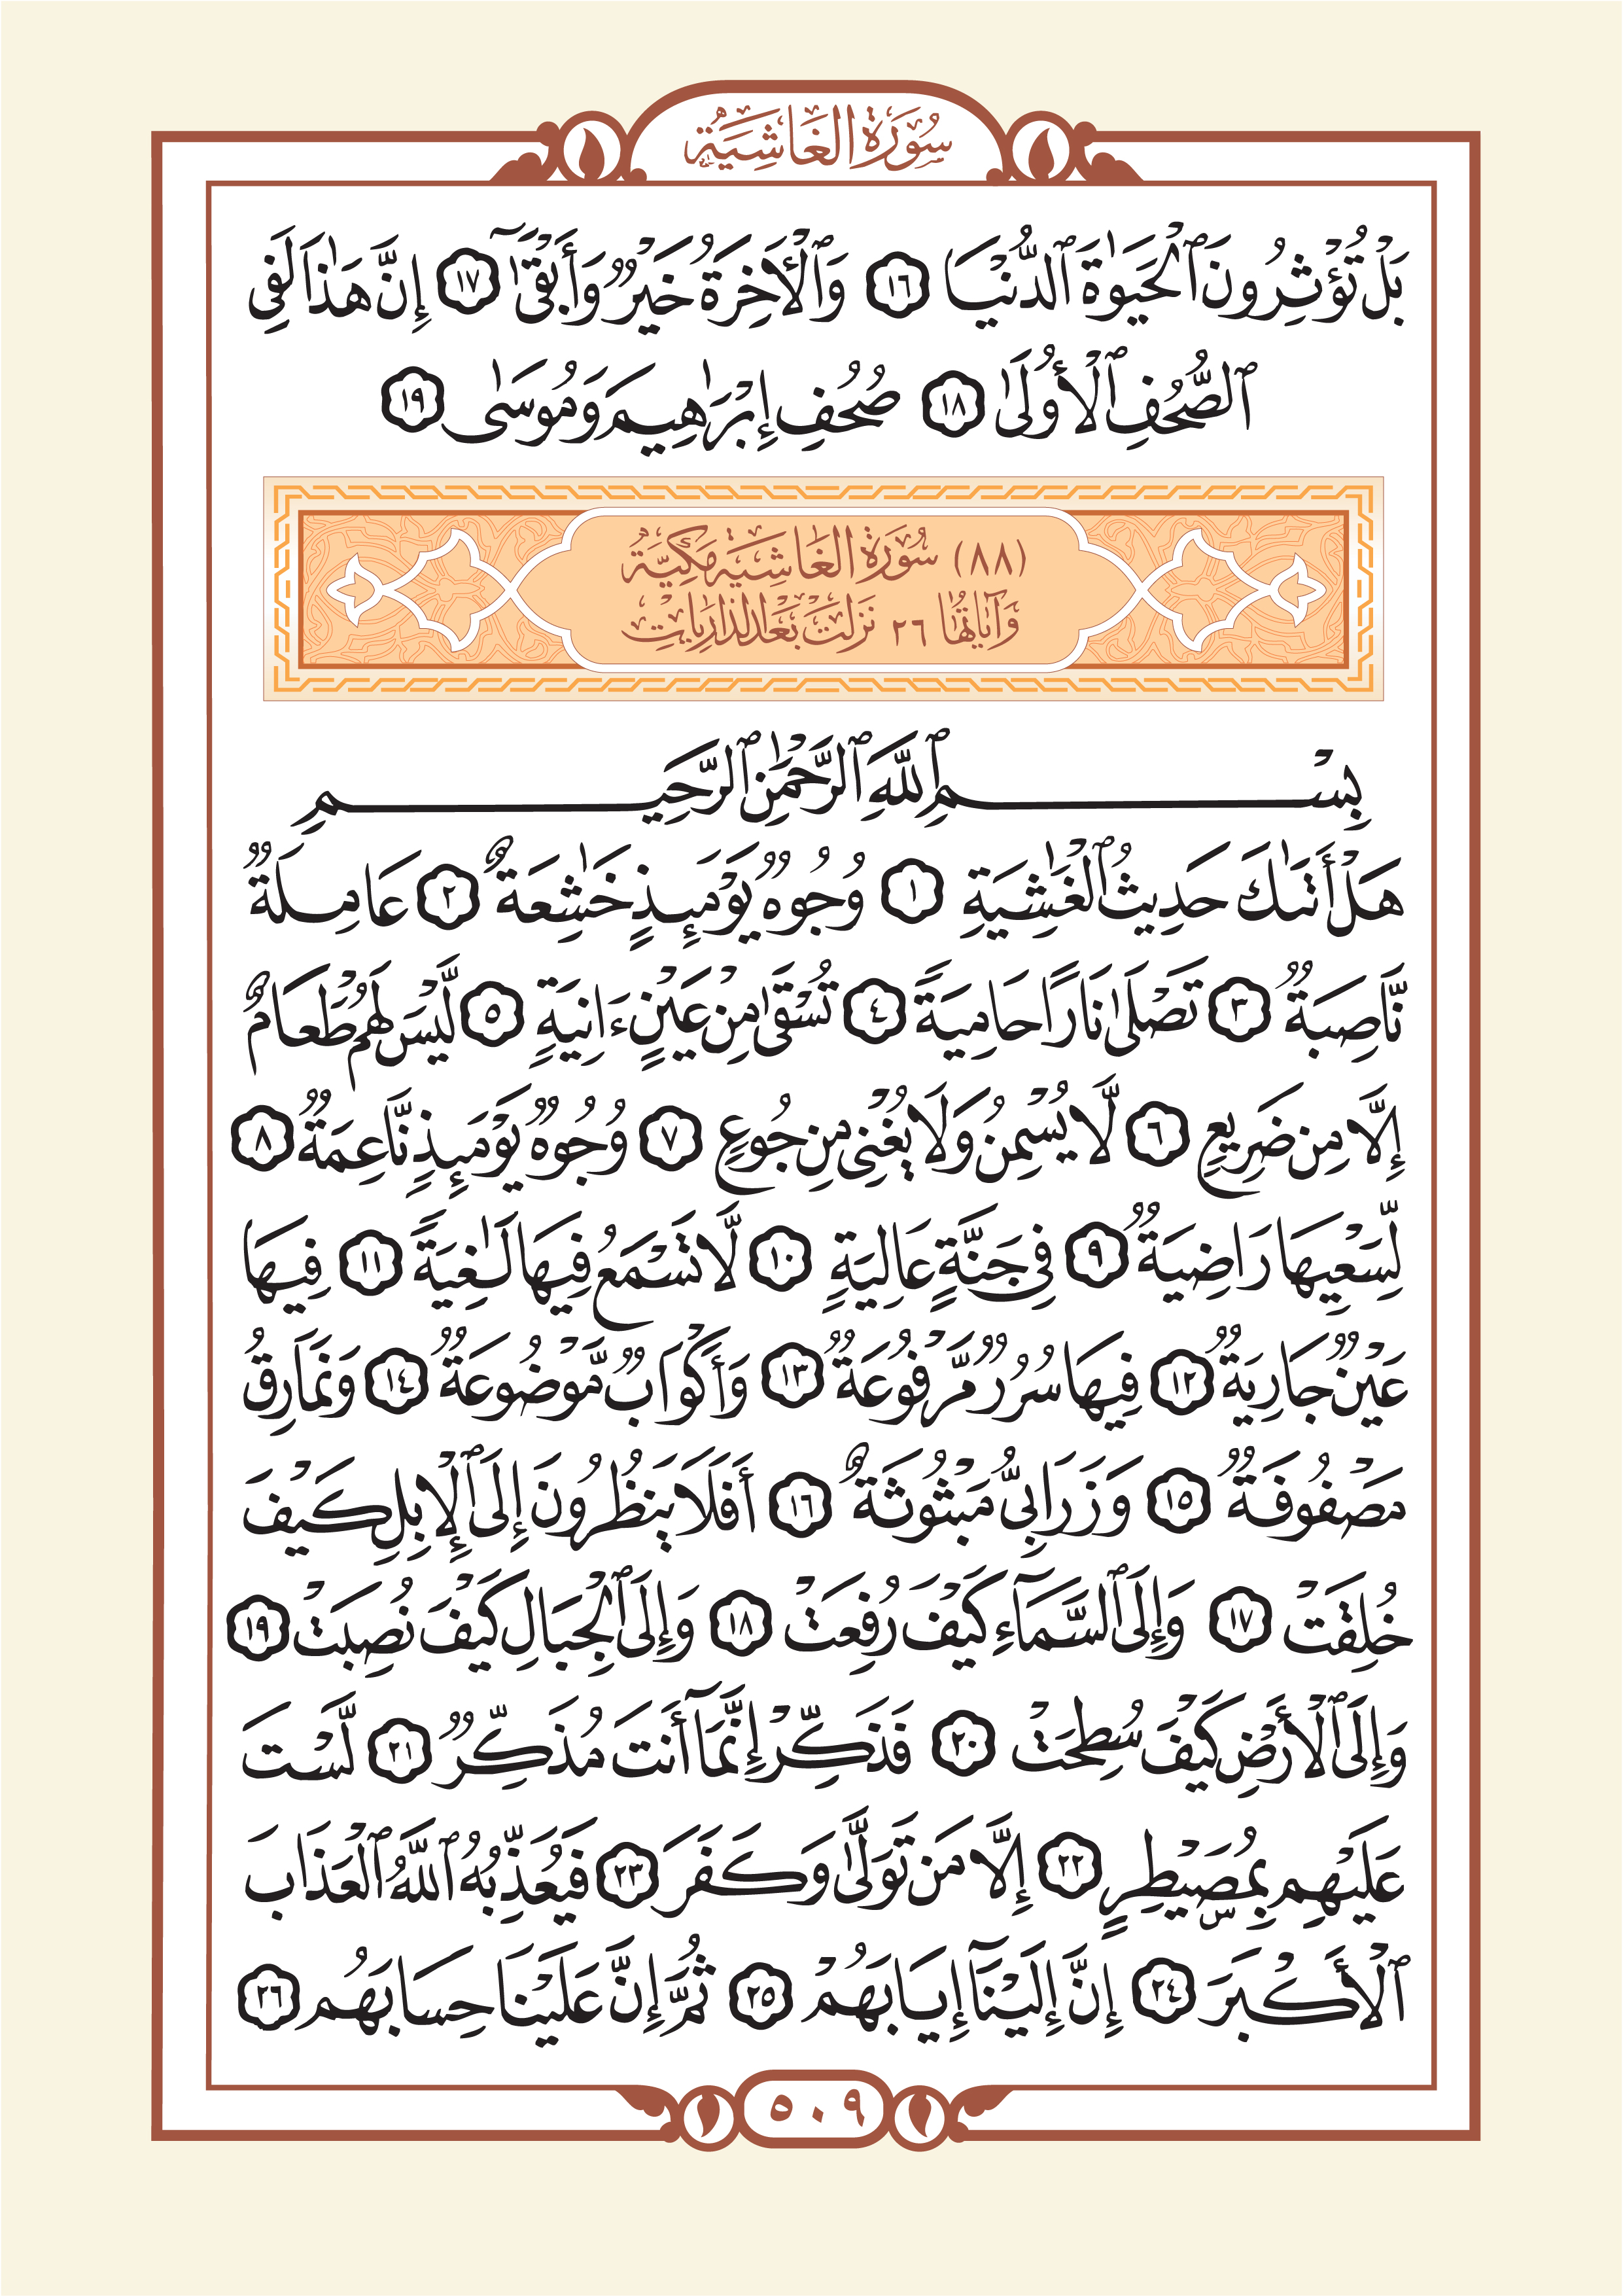 سُورَةُ الغَاشِيَةِ
بَلْ تُؤْثِرُونَ ٱلْحَيَوٰةَ ٱلدُّنْيَا ١٦ وَٱلْأَخِرَةُ خَيْرٌ وَأَبْقَىٰٓ ١٧ إِنَّ هَٰذَا لَفِى
ٱلصُّحُفِ ٱلْأُولَىٰ ١٨ صُحُفِ إِبْرَٰهِيمَ وَمُوسَىٰ ١٩
(٨٨) سُورَةُ الغَاشِيَةِ مَكِيَّةٌ
وَآيَاتُهَا ٢٦ نَزَلَتْ بَعْدَ الذَّارِيَاتِ
بِسْمِ ٱللَّهِ ٱلرَّحْمَٰنِ ٱلرَّحِيمِ
هَلْ أَتَىٰكَ حَدِيثُ ٱلْغَٰشِيَةِ ١ وُجُوهٌ يَوْمَئِذٍ خَٰشِعَةٌ ٢ عَامِلَةٌ
نَّاصِبَةٌ ٣ تَصْلَىٰ نَارًا حَامِيَةً ٤ تُسْقَىٰ مِنْ عَيْنٍ ءَانِيَةٍ ٥ لَّيْسَ لَهُمْ طَعَامٌ
إِلَّا مِن ضَرِيعٍ ٦ لَّا يُسْمِنُ وَلَا يُغْنِى مِن جُوعٍ ٧ وُجُوهٌ يَوْمَئِذٍ نَّاعِمَةٌ ٨
لِّسَعْيِهَا رَاضِيَةٌ ٩ فِى جَنَّةٍ عَالِيَةٍ ١٠ لَّا تَسْمَعُ فِيهَا لَٰغِيَةً ١١ فِيهَا
عَيْنٌ جَارِيَةٌ ١٢ فِيهَا سُرُرٌ مَّرْفُوعَةٌ ١٣ وَأَكْوَابٌ مَّوْضُوعَةٌ ١٤ وَنَمَارِقُ
مَصْفُوفَةٌ ١٥ وَزَرَابِىُّ مَبْثُوثَةٌ ١٦ أَفَلَا يَنظُرُونَ إِلَى ٱلْإِبِلِ كَيْفَ
خُلِقَتْ ١٧ وَإِلَى ٱلسَّمَآءِ كَيْفَ رُفِعَتْ ١٨ وَإِلَى ٱلْجِبَالِ كَيْفَ نُصِبَتْ ١٩
وَإِلَى ٱلْأَرْضِ كَيْفَ سُطِحَتْ ٢٠ فَذَكِّرْ إِنَّمَآ أَنتَ مُذَكِّرٌ ٢١ لَّسْتَ
عَلَيْهِم بِمُصَۣيْطِرٍ ٢٢ إِلَّا مَن تَوَلَّىٰ وَكَفَرَ ٢٣ فَيُعَذِّبُهُ ٱللَّهُ ٱلْعَذَابَ
ٱلْأَكْبَرَ ٢٤ إِنَّ إِلَيْنَآ إِيَابَهُمْ ٢٥ ثُمَّ إِنَّ عَلَيْنَا حِسَابَهُم ٢٦
٥٠٩